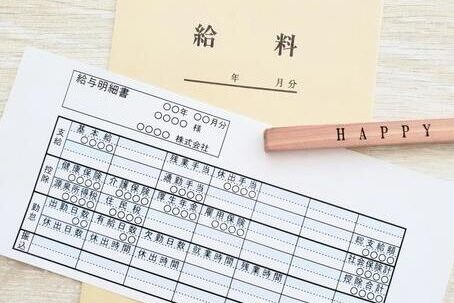 給 料
年 月分
HAPPY
給与明細書
○○年 ○○月分
○○○○ 様
○○○○ 株式会社
支給 基本給 残業手当 休出手当
○○○○
通勤手当
控除 健康保険 介護保険 厚生年金 雇用保険
○○○○ ○○○○ ○○○○ ○○○○
源泉所得税 住民税
○○○○ ○○○○
勤怠 出勤日数 有給日数 欠勤日数 就業時間 残業時間
休出日数 休出時間 休出時間
振込
総支給額
○○○○
社会保険計
○○○○
控除合計
○○○○